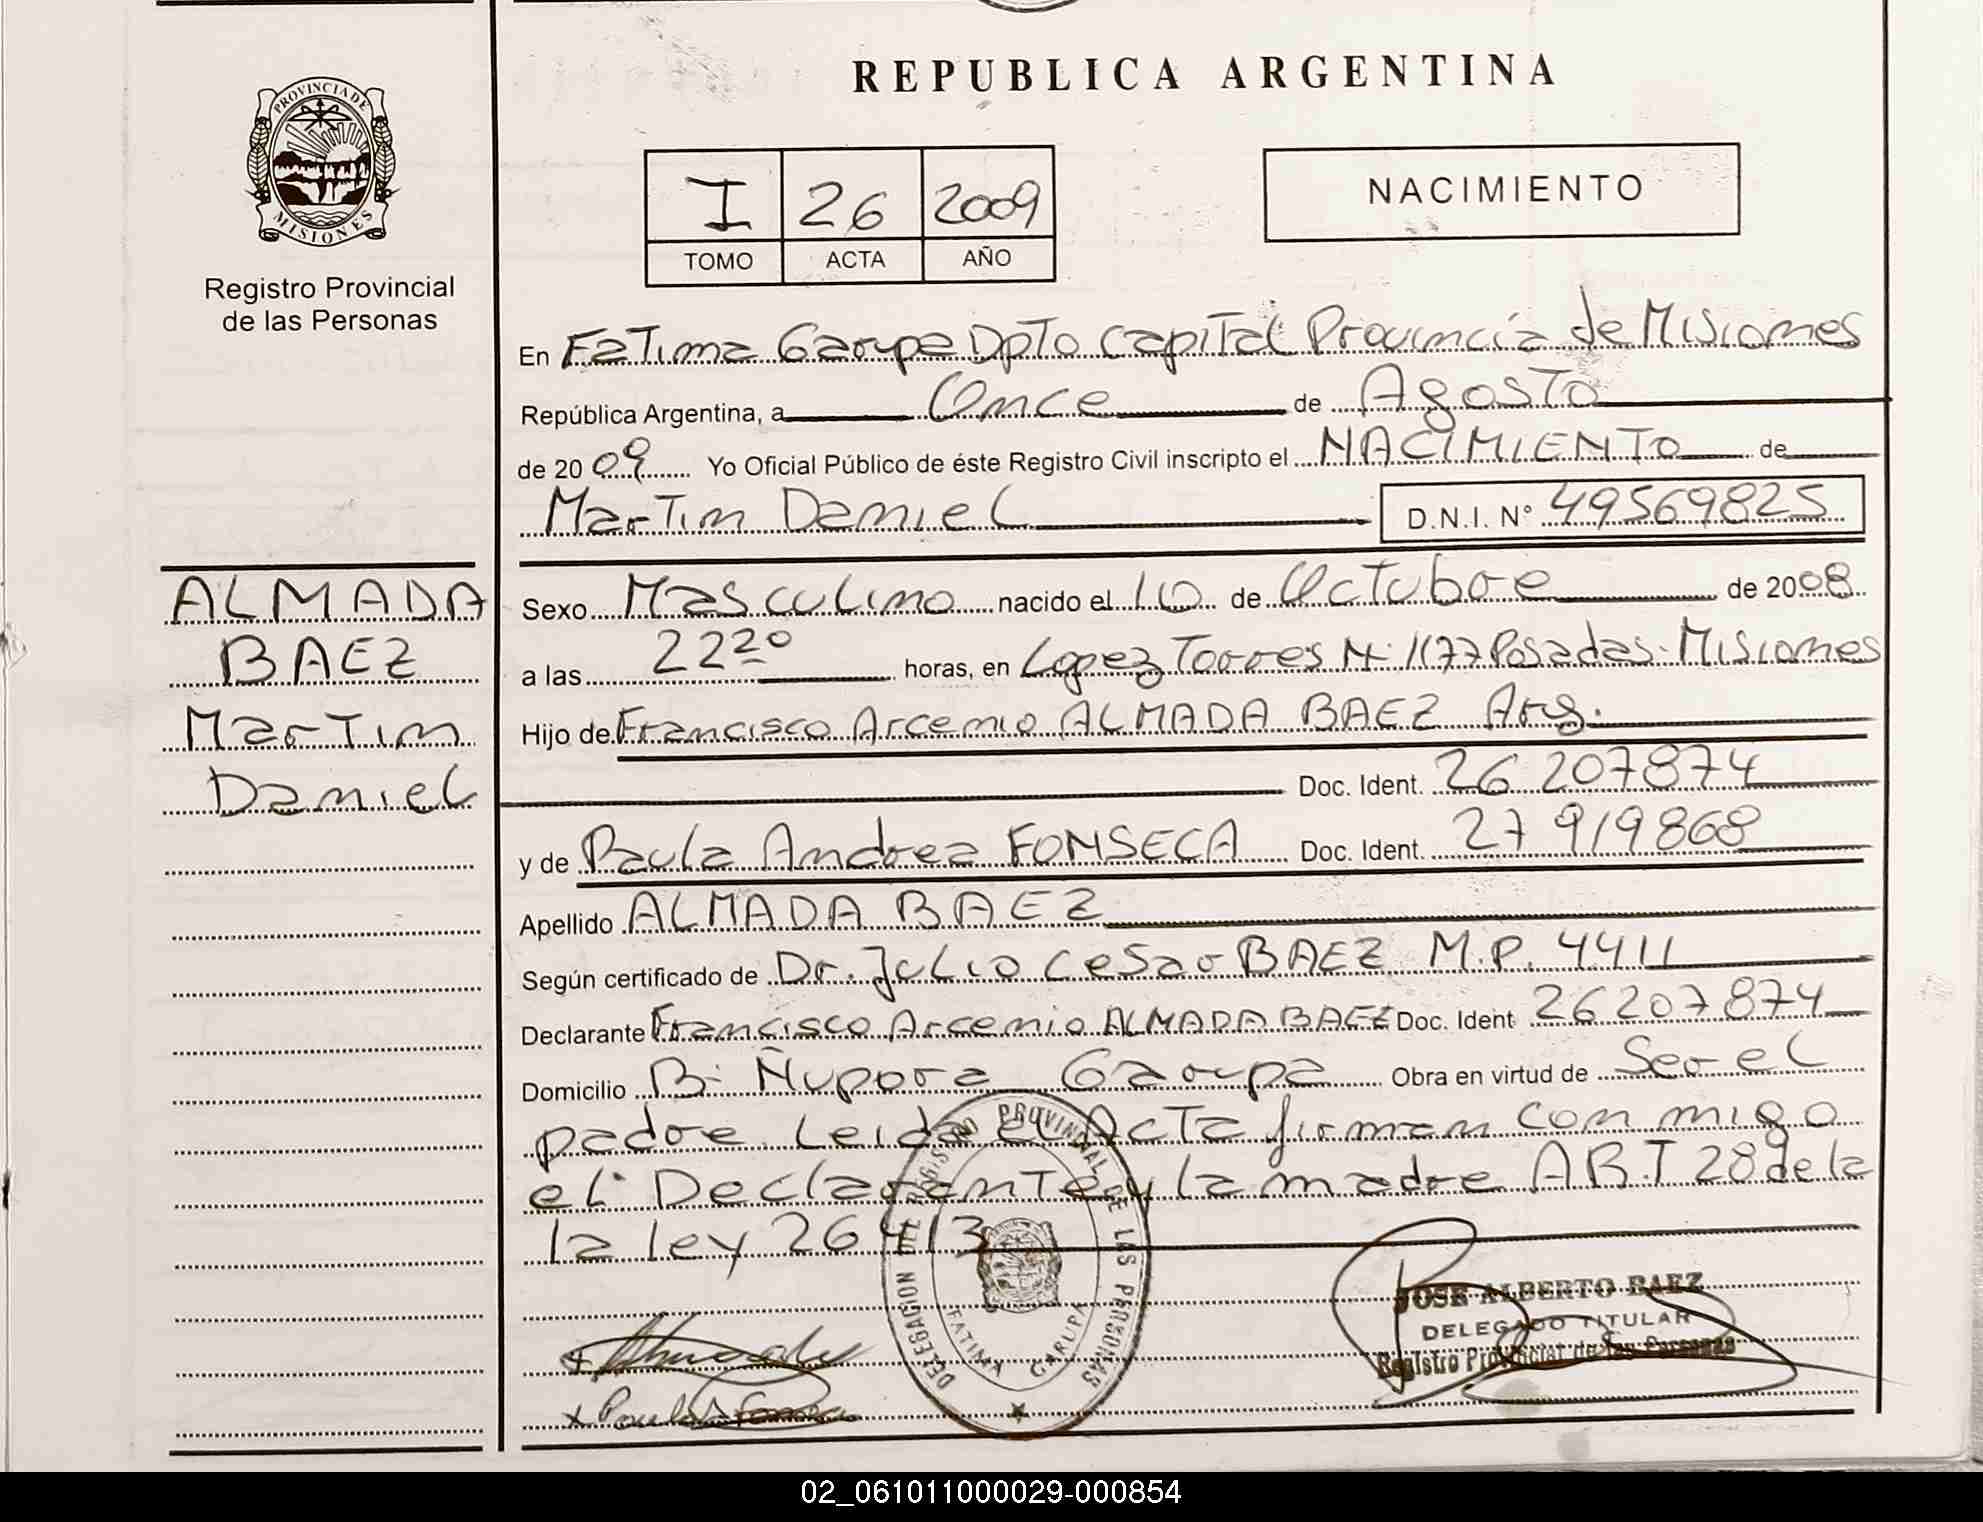 REPUBLICA ARGENTINA
PROVINCIA DE
MISIONES
Registro Provincial
de las Personas
I 26 2009
TOMO ACTA AÑO
NACIMIENTO
En Fatima Garupa Dpto Capital Provincia de Misiones
República Argentina, a Once de Agosto
de 2009 Yo Oficial Público de éste Registro Civil inscripto el NACIMIENTO de
Martin Daniel D.N.I. N° 49569825
ALMADA
BAEZ
Martin
Daniel
Sexo Masculino nacido el 10 de Octubre de 2008
a las 22 20 horas, en Lopez Torres N: 1177 Posadas. Misiones
Hijo de Francisco Arcenio ALMADA BAEZ Arg.
Doc. Ident. 26 207874
y de Paula Andrea FONSECA Doc. Ident. 27 919868
Apellido ALMADA BAEZ
Según certificado de Dr. Julio Cesar BAEZ M.P. 4411
Declarante Francisco Arcenio ALMADA BAEZ Doc. Ident 26207874
Domicilio B: Ñupora Garupa Obra en virtud de Ser el
padre Leida el Acta firman con migo
el Declarante y la madre ART 28 de la
la ley 26413
DELEGACION DEL REGISTRO PROVINCIAL DE LAS PERSONAS
FATIMA GARUPA
JOSE ALBERTO BAEZ
DELEGADO TITULAR
Registro Provincial de las Personas
Paula Fonseca
02_061011000029-000854